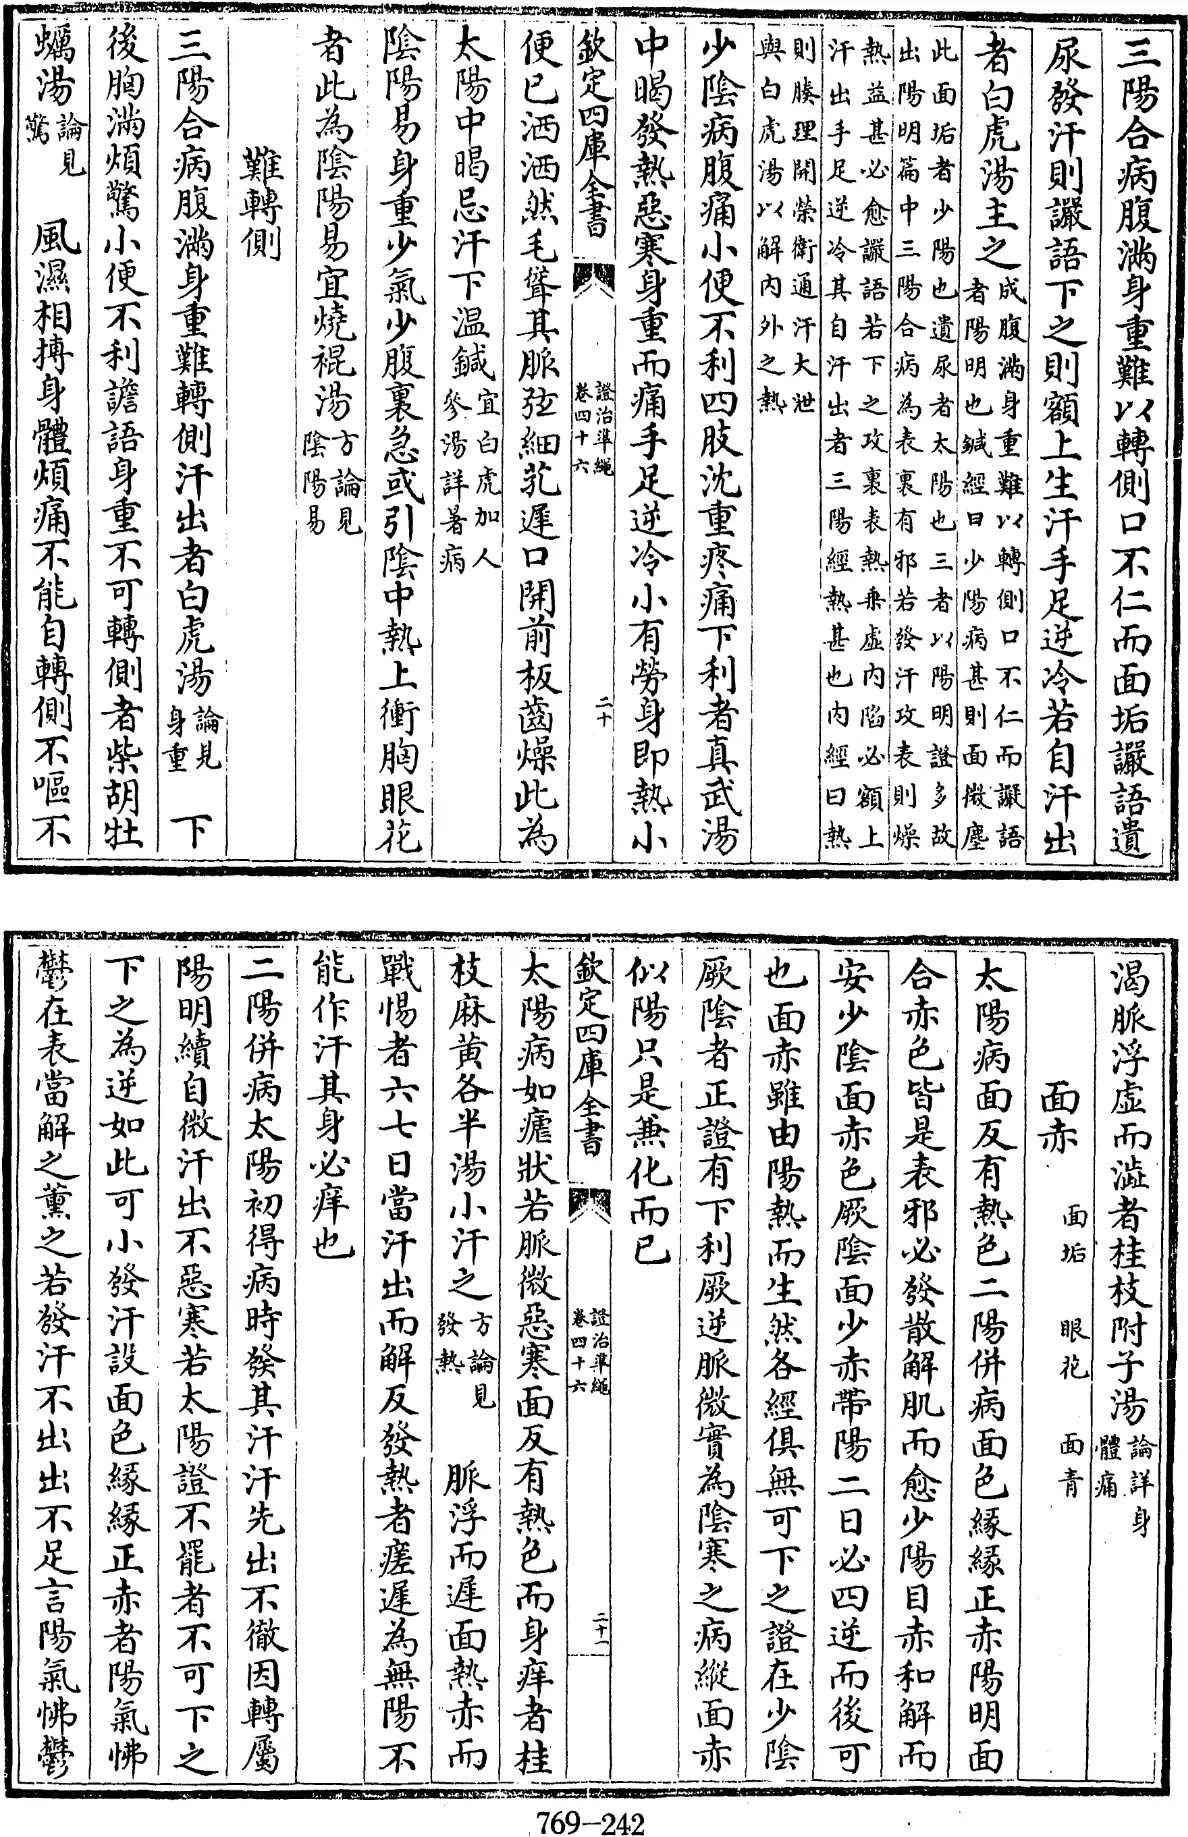 三陽合病腹滿身重難以轉側口不仁而面垢讝語遺
尿發汗則讝語下之則額上生汗手足逆冷若自汗出
者白虎湯主之成腹滿身重難以轉側口不仁而讝語
者陽明也鍼經曰少陽病甚則面微塵
此面垢者少陽也遺尿者太陽也三者以陽明證多故
出陽明篇中三陽合病為表裏有邪若發汗攻表則燥
熱益甚必愈讝語若下之攻裏表熱乗虛內陷必額上
汗出手足逆冷其自汗出者三陽經熱甚也內經曰熱
則腠理開榮衛通汗大泄
與白虎湯以解內外之熱
少陰病腹痛小便不利四肢沈重疼痛下利者真武湯
中暍發熱惡寒身重而痛手足逆冷小有勞身即熱小
欽定四庫全書
證治準繩
卷四十六
二十
便已洒洒然毛聳其脈弦細芤遲口開前板齒燥此為
太陽中暍忌汗下溫鍼宜白虎加人
參湯詳暑病
陰陽易身重少氣少腹裏急或引陰中熱上衝胸眼花
者此為陰陽易宜燒裩湯方論見
陰陽易
難轉側
三陽合病腹滿身重難轉側汗出者白虎湯論見
身重
下
後胸滿煩驚小便不利譫語身重不可轉側者柴胡牡
蠣湯論見
驚
風濕相搏身體煩痛不能自轉側不嘔不
渴脈浮虛而澁者桂枝附子湯論詳身
體痛
面赤
面垢
眼花
面青
太陽病面反有熱色二陽併病面色緣緣正赤陽明面
合赤色皆是表邪必發散解肌而愈少陽目赤和解而
安少陰面赤色厥陰面少赤帶陽二日必四逆而後可
也面赤雖由陽熱而生然各經俱無可下之證在少陰
厥陰者正證有下利厥逆脈微實為陰寒之病縱面赤
似陽只是兼化而已
欽定四庫全書
證治準繩
卷四十六
二十一
太陽病如瘧狀若脈微惡寒面反有熱色而身痒者桂
枝麻黃各半湯小汗之方論見
發熱
脈浮而遲面熱赤而
戰惕者六七日當汗出而解反發熱者瘥遲為無陽不
能作汗其身必痒也
二陽併病太陽初得病時發其汗汗先出不徹因轉屬
陽明續自微汗出不惡寒若太陽證不罷者不可下之
下之為逆如此可小發汗設面色緣緣正赤者陽氣怫
鬱在表當解之薰之若發汗不出出不足言陽氣怫鬱
769-242